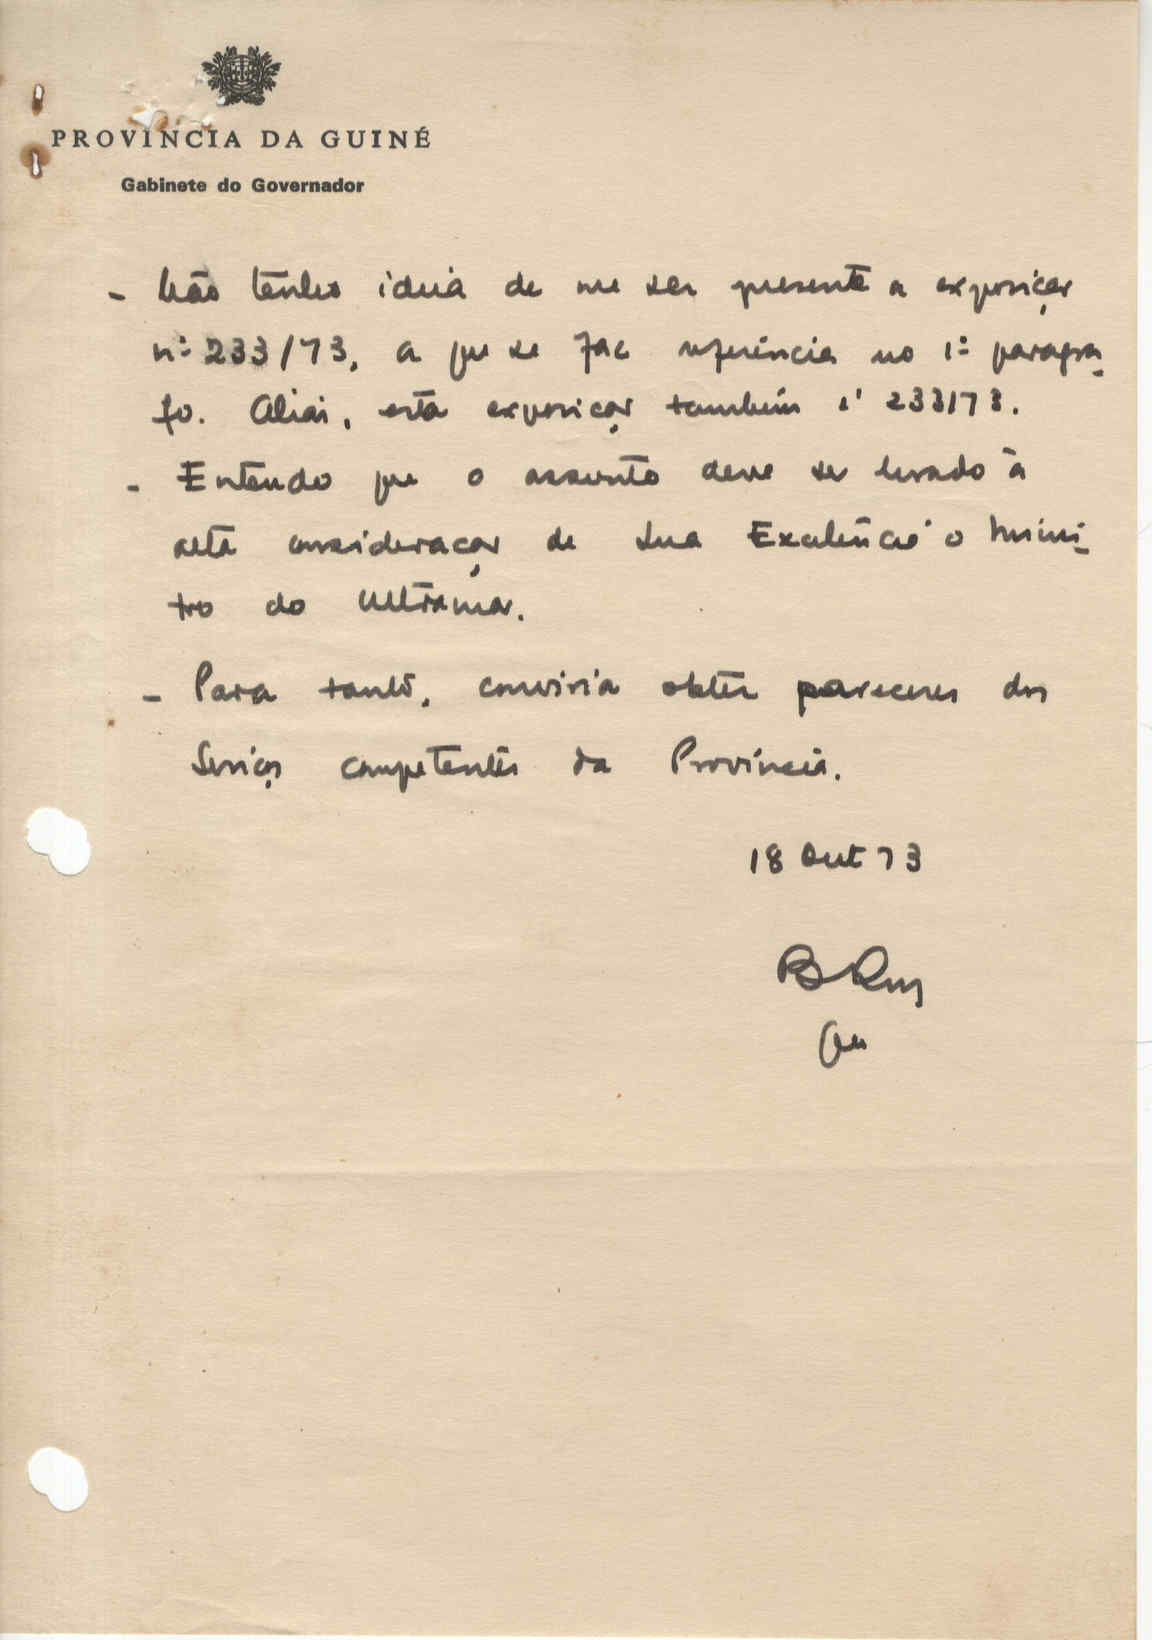 PROVÍNCIA DA GUINÉ
Gabinete do Governador
- Não tenho ideia de me ser presente a exposição
nº 233/73, a que se faz referência no 1º parágra-
fo. Aliás, esta exposição também é 233/73.
- Entendo que o assunto deve ser levado à
alta consideração de Sua Excelência o Minis-
tro do Ultramar.
- Para tanto, conviria obter pareceres dos
Serviços competentes da Província.
18 Out 73